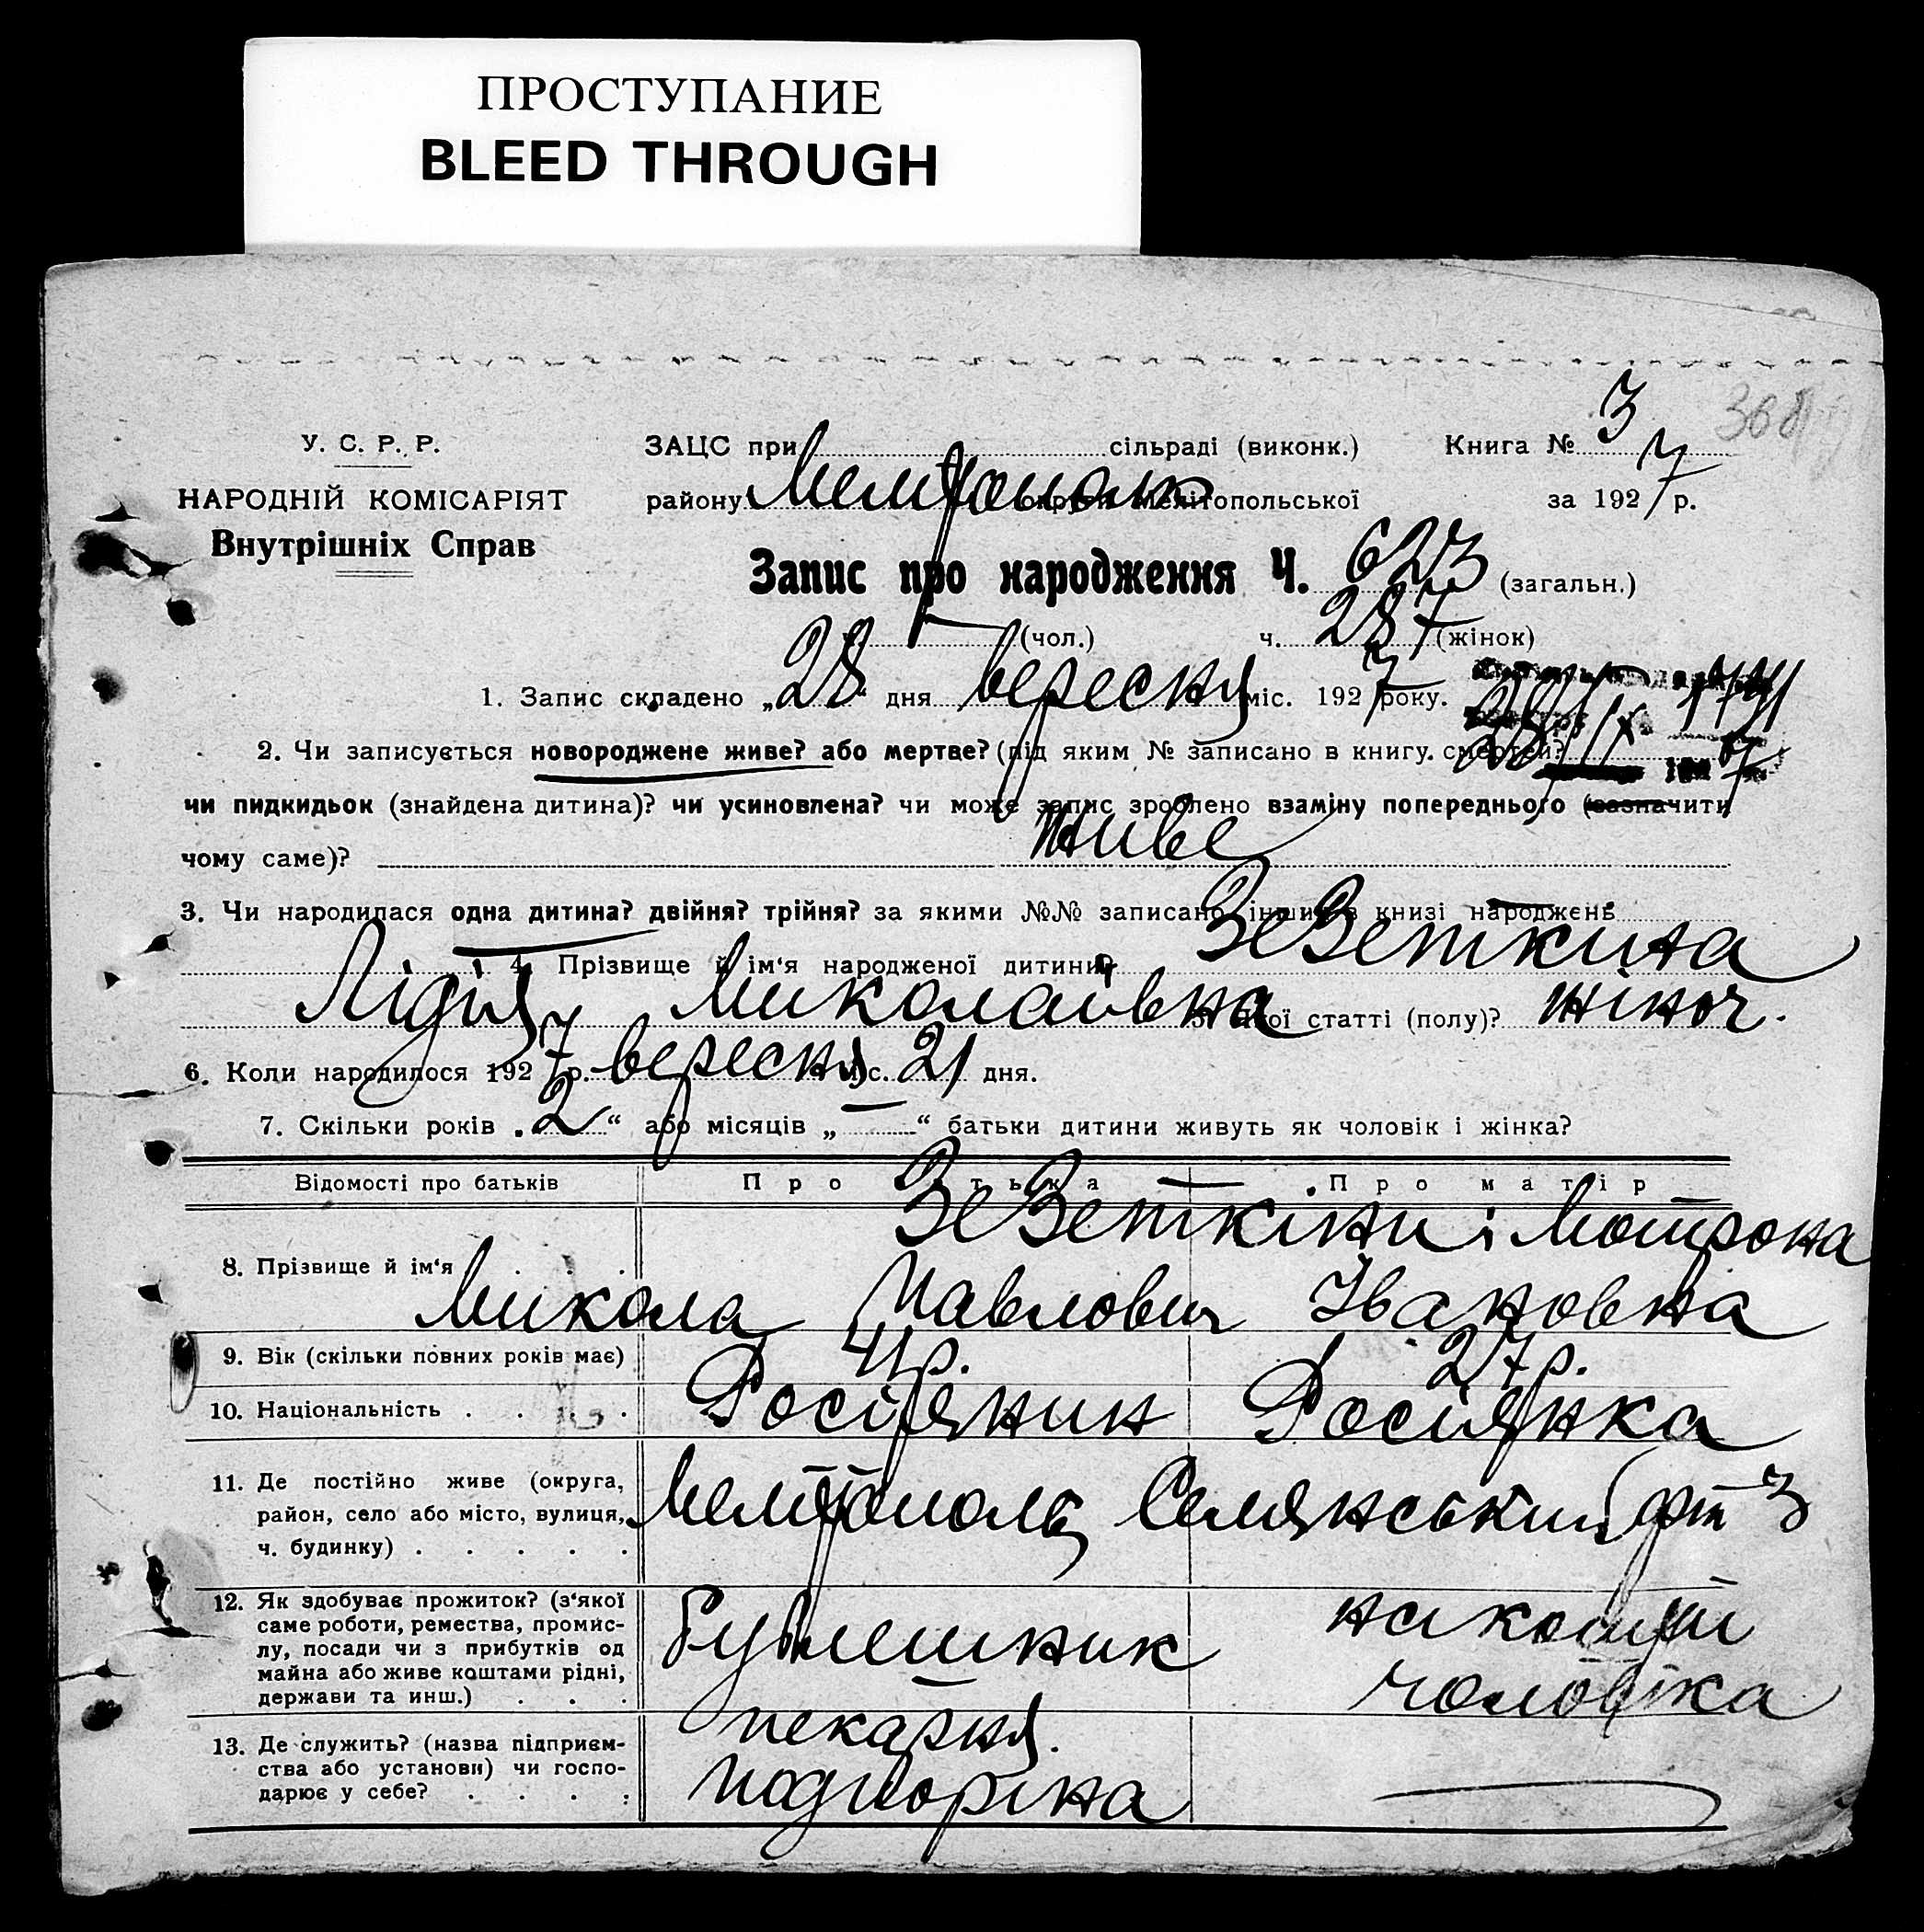 ПРОСТУПАНИЕ
BLEED THROUGH
У. С. Р. Р.
НАРОДНІЙ КОМІСАРІЯТ
Внутрішніх Справ
ЗАЦС при сільраді (виконк.)
району округи Мелітопольської
Книга № 3
за 1927 р.
Запис про народження Ч. 623 (загальн.)
(чол.) ч. 287 (жінок)
1. Запис складено „28“ дня вересня міс. 1927 року.
2. Чи записується новороджене живе? або мертве? (під яким № записано в книгу смертей?
чи пидкидьок (знайдена дитина)? чи усиновлена? чи може запис зроблено взаміну попереднього (зазначити
чому саме)? живе
3. Чи народилася одна дитина? двійня? трійня? за якими №№ записано інших в книзі народжень
4. Прізвище й ім‘я народженої дитини? Зеземкина
Лідія Миколаівна 5. Якої статті (полу)? жіноч.
6. Коли народилося 1927 р. вересня міс. 21 дня.
7. Скільки років „2“ або місяців „—“ батьки дитини живуть як чоловік і жінка?
Відомості про батьків Про батька Про матір
8. Прізвище й ім‘я
Зеземкіни і Мотрона
Микола Павлович Івановна
9. Вік (скільки повних років має) 41р. 27р.
10. Національність Росіянин Росіянка
11. Де постійно живе (округа,
район, село або місто, вулиця,
ч. будинку)
Мелітополь
3
12. Як здобуває прожиток? (з‘якої
саме роботи, ремества, промис-
лу, посади чи з прибутків од
майна або живе коштами рідні,
держави та инш.)
на кошти
чоловіка
13. Де служить? (назва підприєм-
ства або установи) чи госпо-
дарює у себе?
пекарня.